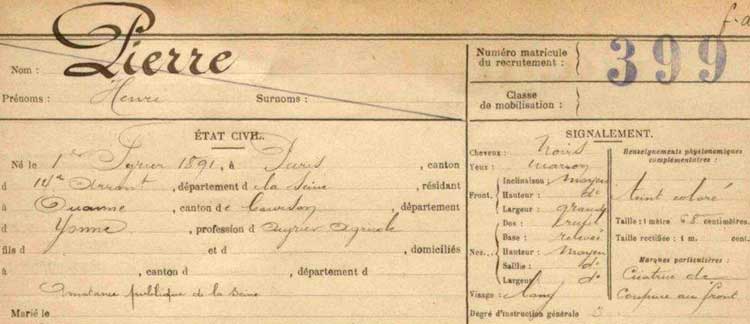 Nom : Pierre
Prénoms : Henri Surnoms :
Numéro matricule du recrutement : 399
Classe de mobilisation :
ÉTAT CIVIL.
Né le 1er Février 1891, à Paris, canton
d 14e Arront, département de la Seine, résidant
à Ouanne, canton de Courson, département
d Yonne, profession d'ouvrier agricole
fils d et d , domiciliés
à , canton d , département d
publique de la Seine
Marié le
SIGNALEMENT.
Cheveux : noirs
Yeux : marron
Front. Inclinaison : moyen
Hauteur : do
Largeur : grand
Nez... Dos :
Base : relevé
Hauteur : moyen
Saillie : do
Largeur : do
Visage : long
Degré d'instruction générale 3
Renseignements physionomiques complémentaires :
teint coloré
Taille : 1 mètre 68 centimètres.
Taille rectifiée : 1 m. cent.
Marques particulières :
Cicatrice de
coupure au front